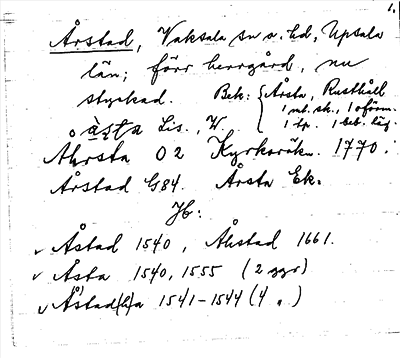 1.
Årstad, Vaksala sn o. hd, Upsala
län; förr herrgård, nu
styckad. Bek: { Årsta, Rusthåll
1 mt. sk., 1 oförm.
åsta Lis., W. 1 tp. 1 beb. läg.
Ahrsta O 2 Kyrkoräkn. 1770.
Årstad G84. Årsta Ek.
Jb:
✓ Åstad 1540, Åhstad 1661.
✓ Åsta 1540, 1555 (2 ggr)
✓ Åstad(h)a 1541–1544 (4 „)